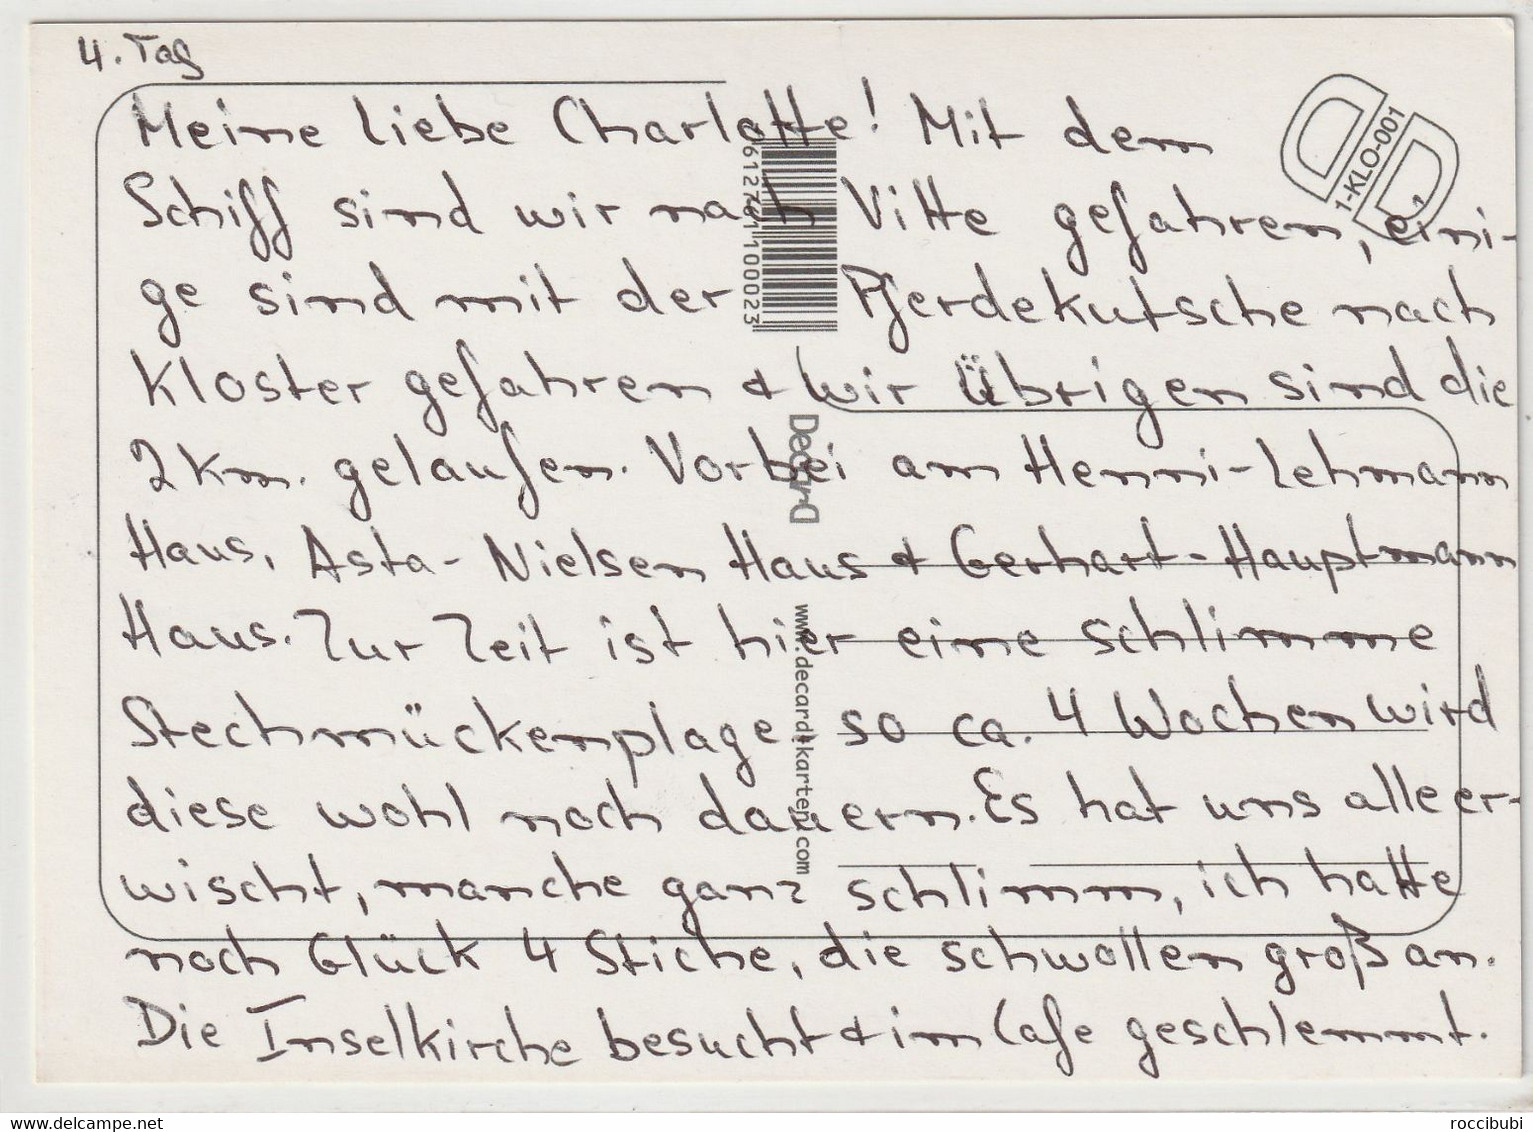 4. Tag
Meine liebe Charlotte! Mit dem
Schiff sind wir nach Vitte gefahren, eini-
ge sind mit der Pferdekutsche nach
Kloster gefahren & wir Übrigen sind die
2 km. gelaufen. Vorbei am Henni-Lehmann
Haus, Asta-Nielsen Haus & Gerhart-Hauptmann
Haus. Zur Zeit ist hier eine schlimme
Stechmückenplage, so ca. 4 Wochen wird
diese wohl noch dauern. Es hat uns alle er-
wischt, manche ganz schlimm, ich hatte
noch Glück 4 Stiche, die schwollen groß an.
Die Inselkirche besucht & im Cafe geschlemmt.
1-KLO-001
612761100023
DecarD
www.decard-karten.com
www.delcampe.net
roccibubi